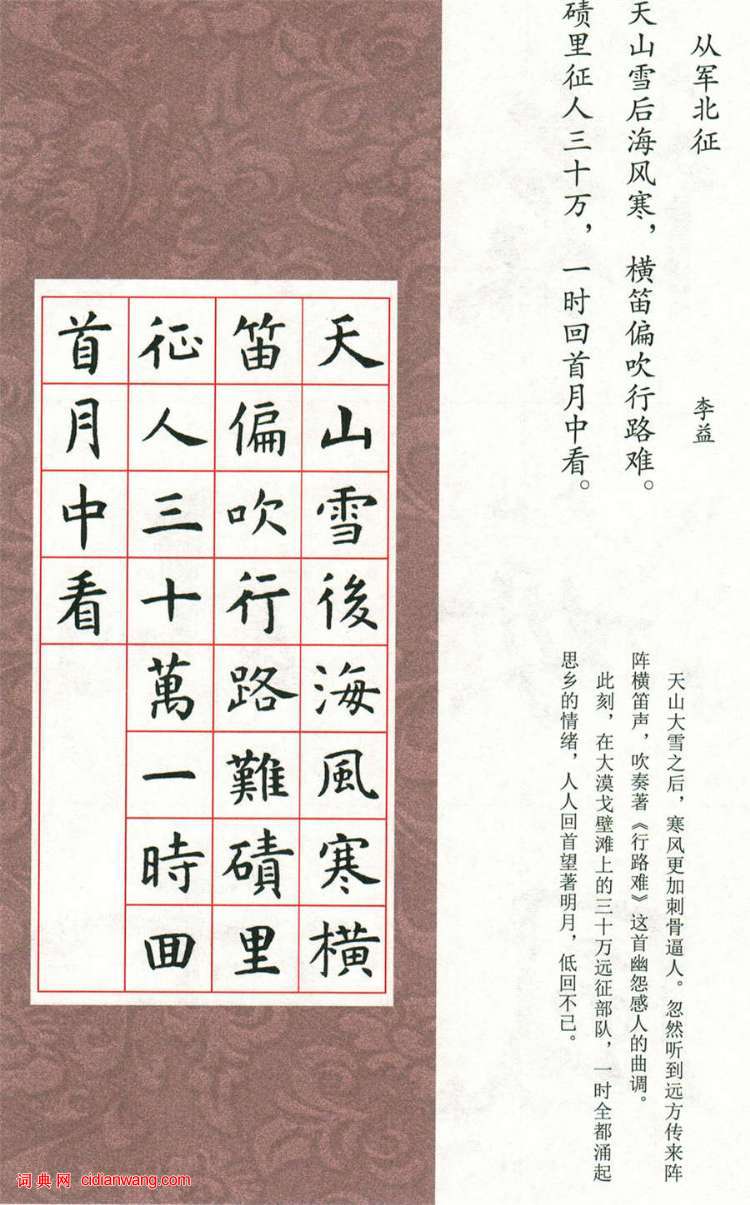 从军北征
李益
天山雪后海风寒，横笛偏吹行路难。
碛里征人三十万，一时回首月中看。
天山大雪之后，寒风更加刺骨逼人。忽然听到远方传来阵
阵横笛声，吹奏著《行路难》这首幽怨感人的曲调。
此刻，在大漠戈壁滩上的三十万远征部队，一时全都涌起
思乡的情绪，人人回首望著明月，低回不已。
天山雪後海風寒橫
笛偏吹行路難磧里
征人三十萬一時回
首月中看
词典网 cidianwang.com